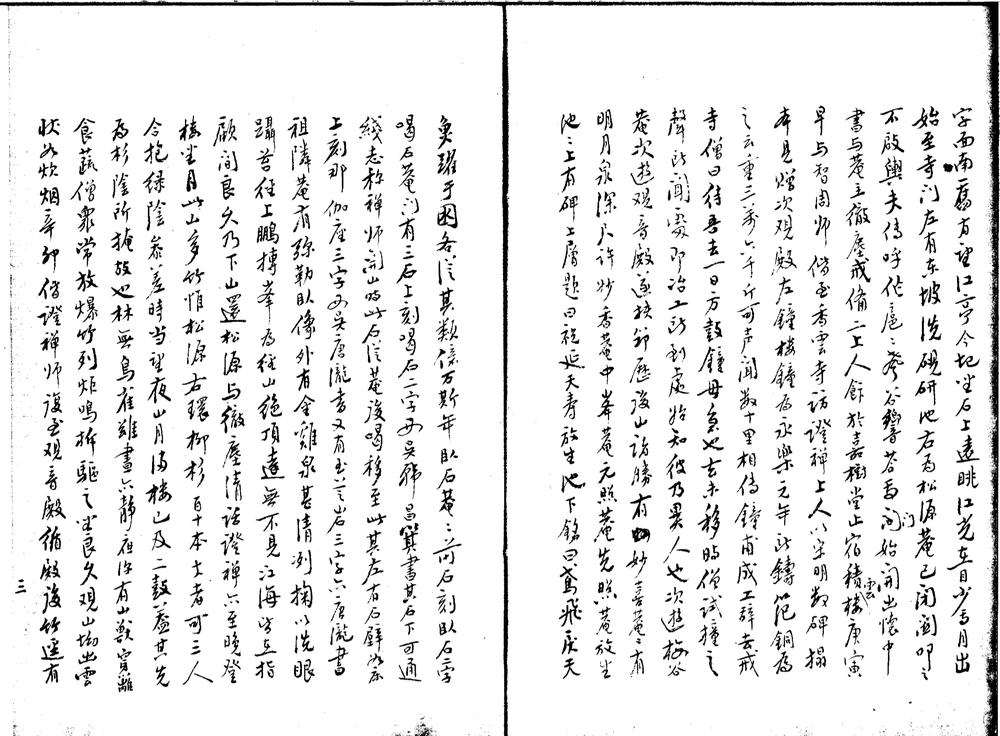 字西南舊有望江亭今圮坐石上遠眺江光在目少焉月出
始至寺門左有東坡洗硯研池右為松源菴已閉關叩之
不啟輿夫傳呼作扈扈聲谷響荅焉門始開出懷中
書与菴主徹塵戒脩二上人飯於嘉樹堂上宿積雲樓庚寅
早与智周師偕至香雲寺訪證禪上人以宋明數碑搨
本見贈次觀殿左鐘樓鐘為永樂元年所鑄范銅為
之云重三萬六千斤可声聞數十里相傳鐘甫成工辭去戒
寺僧曰待吾去一日方鼓鐘毋急也去未移時僧試撞之
聲所聞處即冶工所到處始知彼乃異人也次遊梅谷
菴次遊觀音殿遂扶節歷後山訪勝有妙喜菴菴有
明月泉深尺許妙香菴中峯菴元照菴先照菴放生
池池上有碑上層題曰祝延天壽放生池下銘曰鳶飛戾天
魚躍于困各從其類億万斯年臥石菴菴前石刻臥石字
喝石菴門有三石上刻喝石二字為吳稀昌篆書其石下可通
綫志称禪師開山時此石從菴後喝移至此其左有石壁如奈
上刻那伽座三字为吳唐瀧書又有玉㞢岩三字亦唐瀧書
祖隣菴有弥勒臥像外有金雞泉甚清冽掬以洗眼
躡苔徑上鵬摶峯為徑山絶頂遠無不見江海皆在指
顧间良久乃下山還松源与徹塵清话證禪亦至晚登
樓坐月此山多竹惟松源右環柳杉百十本大者可三人
合抱绿陰參差時当望夜山月满樓已及二鼓蓋其先
為杉陰所掩故也林無鳥雀雖晝亦静夜深有山獸賓離
食蔬僧衆常放爆竹列炬鳴柝驅之坐良久观山坳出雲
状如炊烟辛卯偕證禪师復至观音殿循殿後竹逕有
三